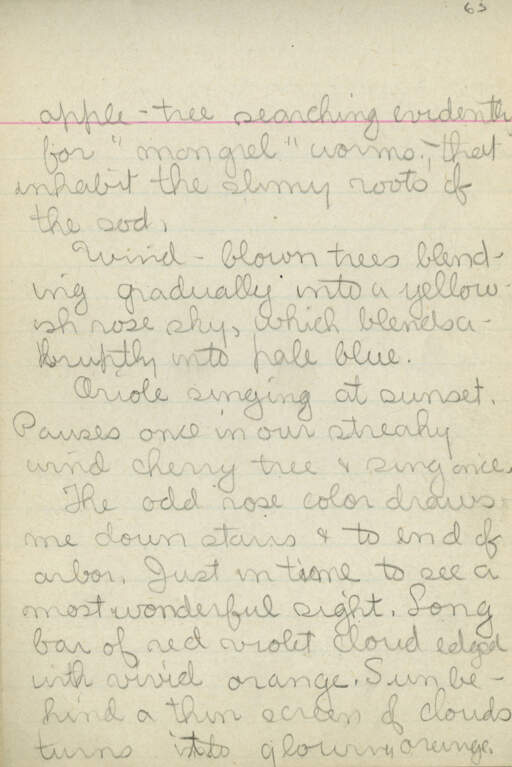 63
apple-tree searching evidently
for "mongrel" worms, that
inhabit the slimy roots of
the sod.
Wind-blown trees blend-
ing gradually into a yellow-
ish rose sky, which blends a-
bruptly into pale blue.
Oriole singing at sunset.
Pauses once in our streaky
wind cherry tree & sing once.
The odd rose color draws
me down stairs & to end of
arbor. Just in time to see a
most wonderful sight. Long
bar of red violet cloud edged
with vivid orange. Sun be-
hind a thin screen of clouds
turns into glowing orange.